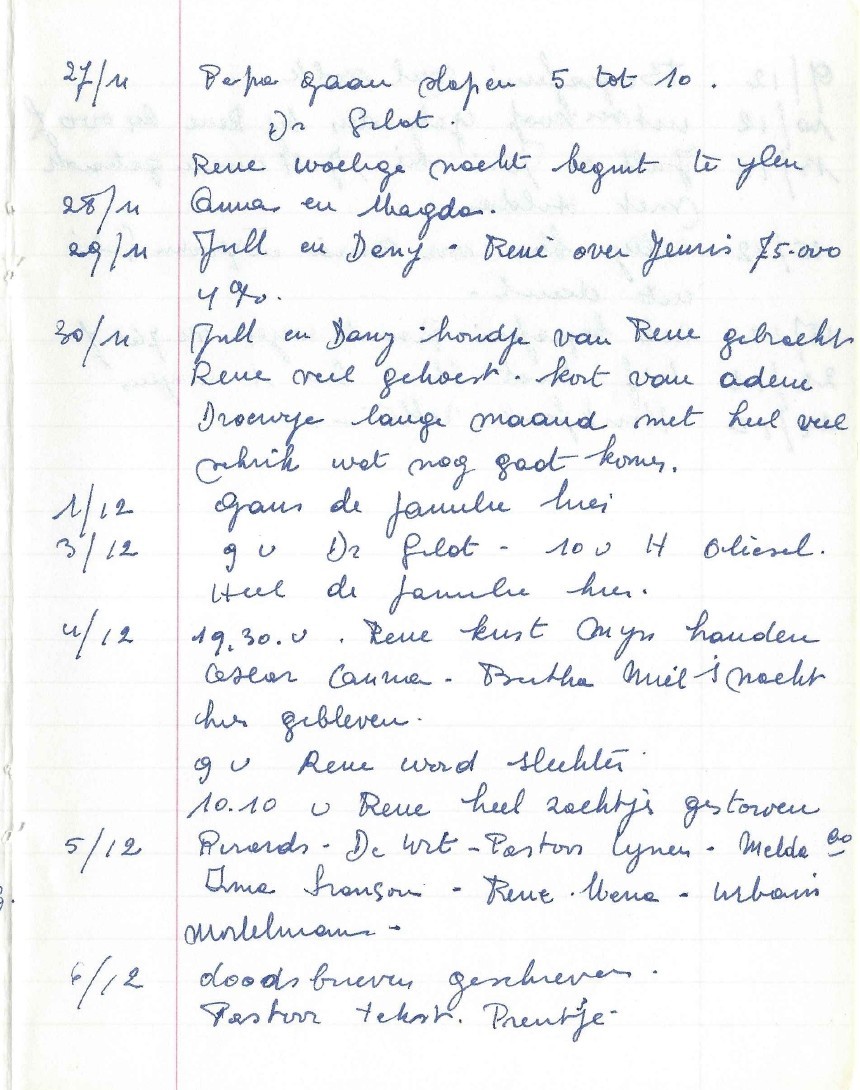 27/11 Papa gaan slapen 5 tot 10.
Dr Gilot
Rene woelige nacht begint te ylen
28/11 Anna en Magda.
29/11 Jull en Dany - René over Jeuris 75.000
4 %.
30/11 Jull en Dany hondje van Rene gebracht
Rene veel gehoest. kort van adem
Droevige lange maand met heel veel
schrik wat nog gaat komen.
1/12 gans de familie hier
3/12 9 u Dr Gilot - 10 u H Oliesel.
Heel de familie hier.
4/12 19.30.u. Rene kust myn handen
Oscar Anna - Bertha Miel 's nacht
hier gebleven.
9 u Rene word slechter
10.10 u Rene heel zachtjes gestorven
5/12 - De Wit - Pastoor Lynen - Melda
Irma - Rene - Urbain
Mortelmans -
6/12 doodsbrieven geschreven.
Pastoor tekst. Prentje